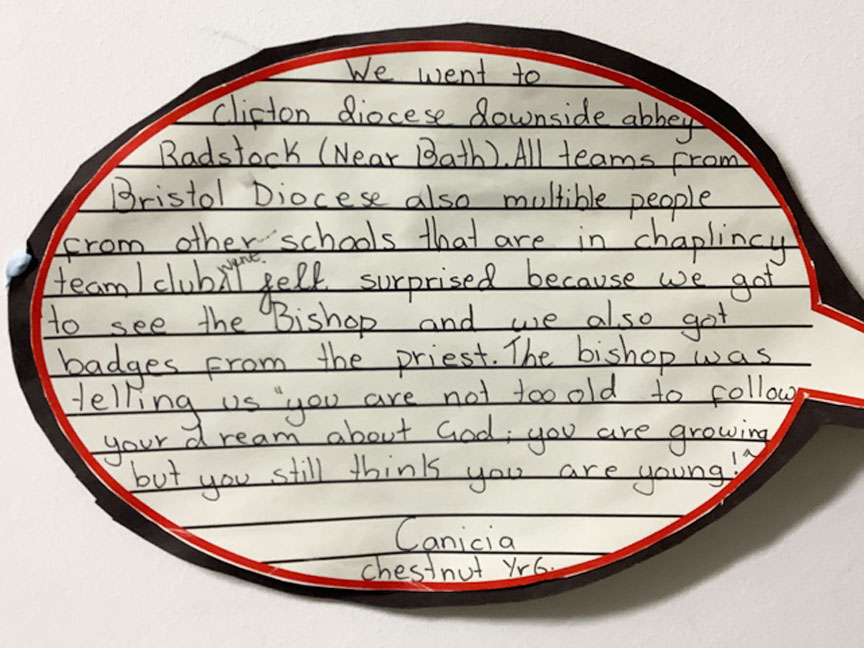 We went to
Clifton diocese downside abbey
Radstock (Near Bath). All teams from
Bristol Diocese also multible people
from other schools that are in chaplincy
team/club felt surprised because we got
to see the Bishop and we also got
badges from the priest. The bishop was
telling us "you are not too old to follow
your dream about God; you are growing
but you still think you are young!"
Canicia
chestnut Yr6.